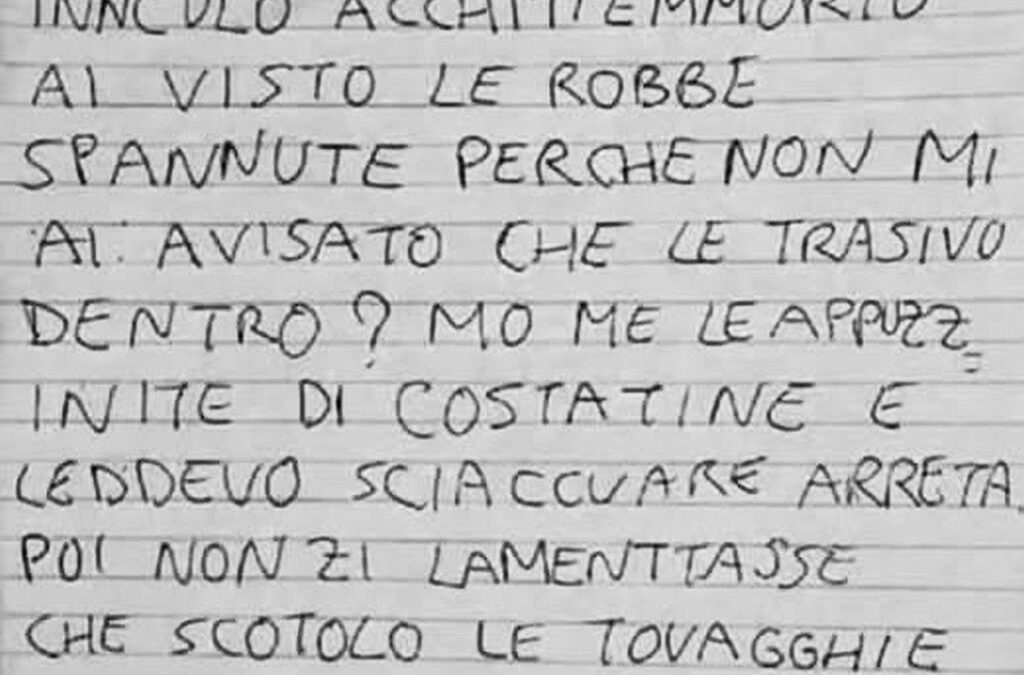 INNCULO ACCHITTEMMORTO
AI VISTO LE ROBBE
SPANNUTE PERCHE NON MI
AI AVISATO CHE LE TRASIVO
DENTRO? MO ME LE APPUZZ=
INITE DI COSTATINE E
LEDDEVO SCIACCUARE ARRETA.
POI NON ZI LAMENTTASSE
CHE SCOTOLO LE TOVAGGHIE